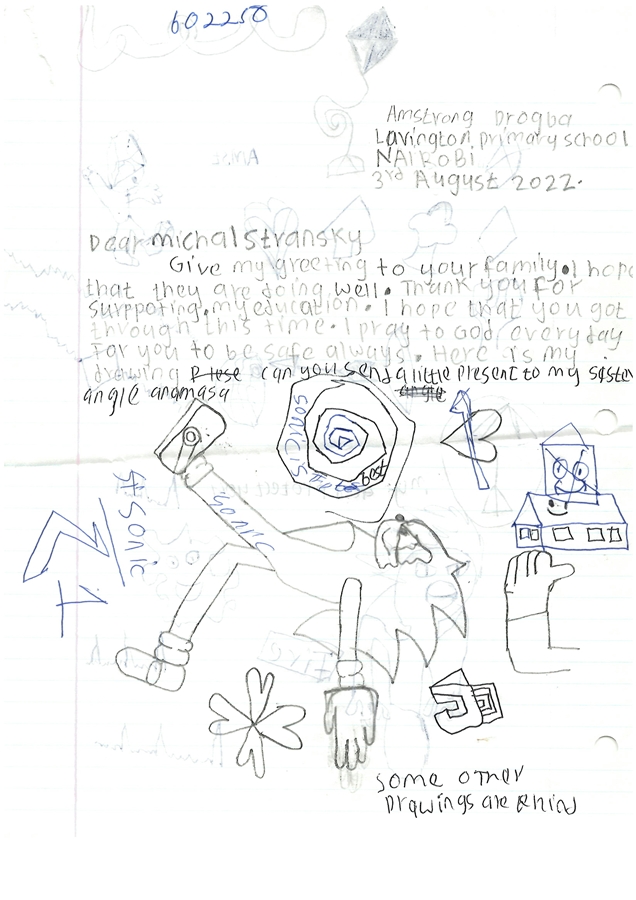 602250
Amstrong Drogba
Lavington primary school
NAIROBI
3rd August 2022.
Dear michal Stransky
Give my greeting to your family. I hope
that they are doing well. Thank you For
surppoting my education. I hope that you got
through this time. I pray to God everyday
For you to be safe always. Here is my
drawing can you send a little present to my sister
angle anamasa
SONIC IS
best
SONIC
# Sonic
N
1
some other
Drawings are